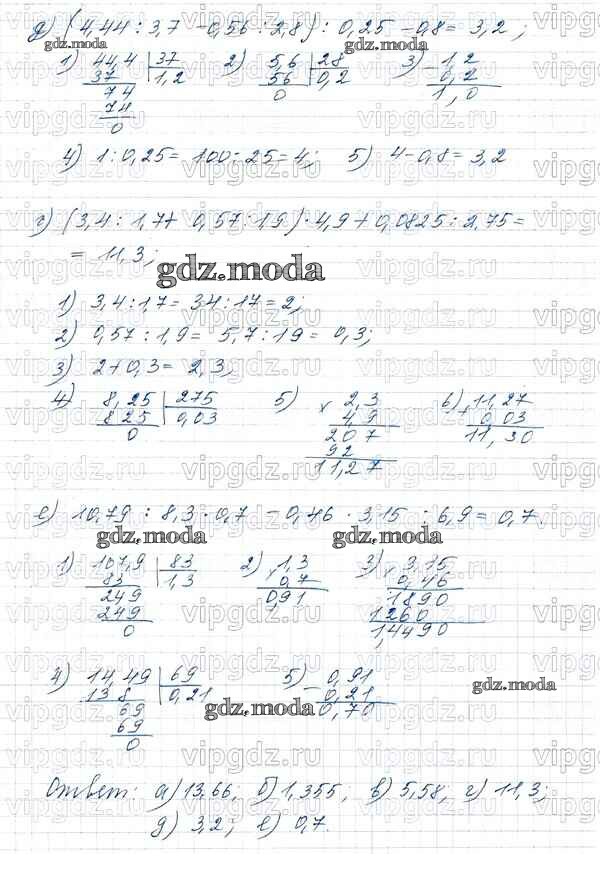 д) (4,44 : 3,7 - 0,56 : 2,8) : 0,25 - 0,8 = 3,2 ;
1) 44,4 | 37 2) 5,6 | 28 3) - 1,2
37 1,2 56 0,2 0,2
74 0 1,0
74
0
4) 1 : 0,25 = 100 : 25 = 4; 5) 4 - 0,8 = 3,2
г) (3,4 : 1,7 + 0,57 : 1,9) · 4,9 + 0,0825 : 2,75 =
= 11,3;
gdz.moda
1) 3,4 : 1,7 = 34 : 17 = 2;
2) 0,57 : 1,9 = 5,7 : 19 = 0,3;
3) 2 + 0,3 = 2,3;
4) 8,25 | 275 5) × 2,3 6) + 11,27
825 0,03 4,9 0,03
0 207 11,30
92
11,27
е) 10,79 : 8,3 · 0,7 - 0,46 · 3,15 : 6,9 = 0,7.
gdz.moda gdz.moda
1) 107,9 | 83 2) × 1,3 3) × 3,15
83 1,3 0,7 0,46
249 0,91 1890
249 1260
0 1,4490
4) 14,49 | 69 5) - 0,91
138 0,21 0,21
69 0,70
69
0
gdz.moda gdz.moda
Ответ: а) 13,66; б) 1,355; в) 5,58; г) 11,3;
д) 3,2; е) 0,7.
vipgdz.ru